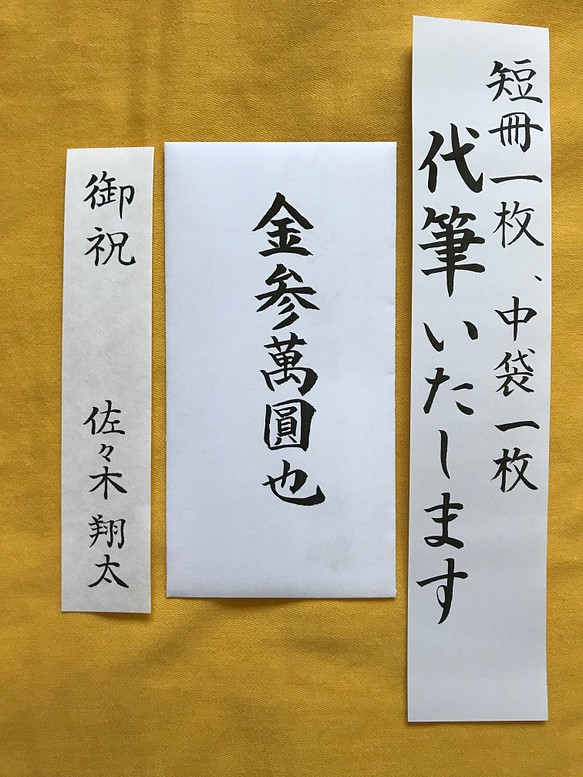 短冊一枚、中袋一枚
代筆いたします
金参萬圓也
御祝
佐々木翔太